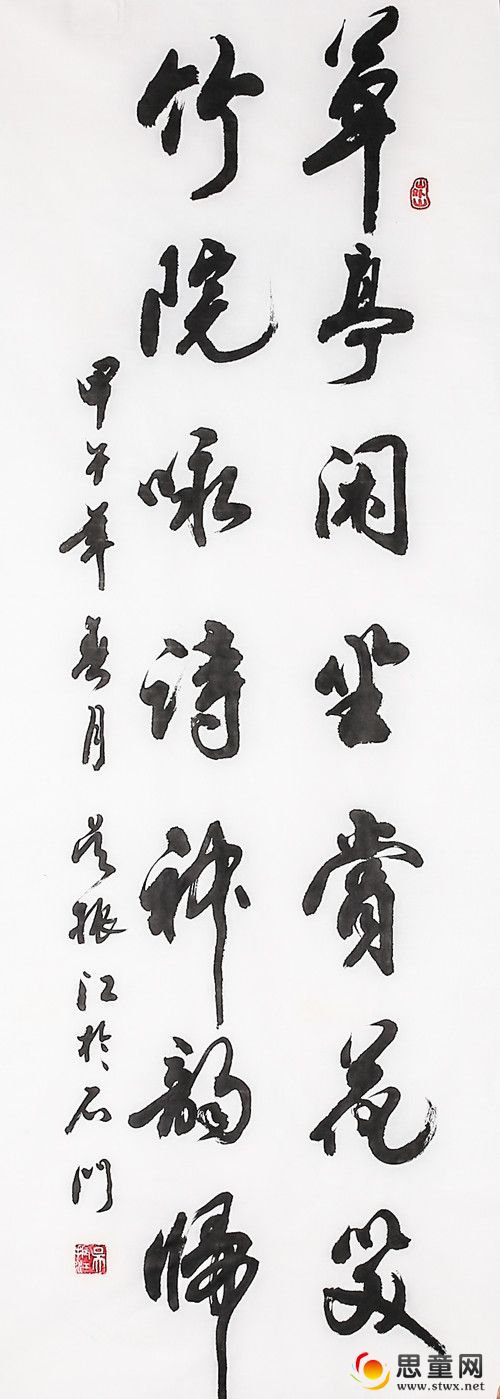 草亭闲坐赏花笑
竹院咏诗神韵归
甲午年春月 吴振江於石门
思童网
www.stwx.net